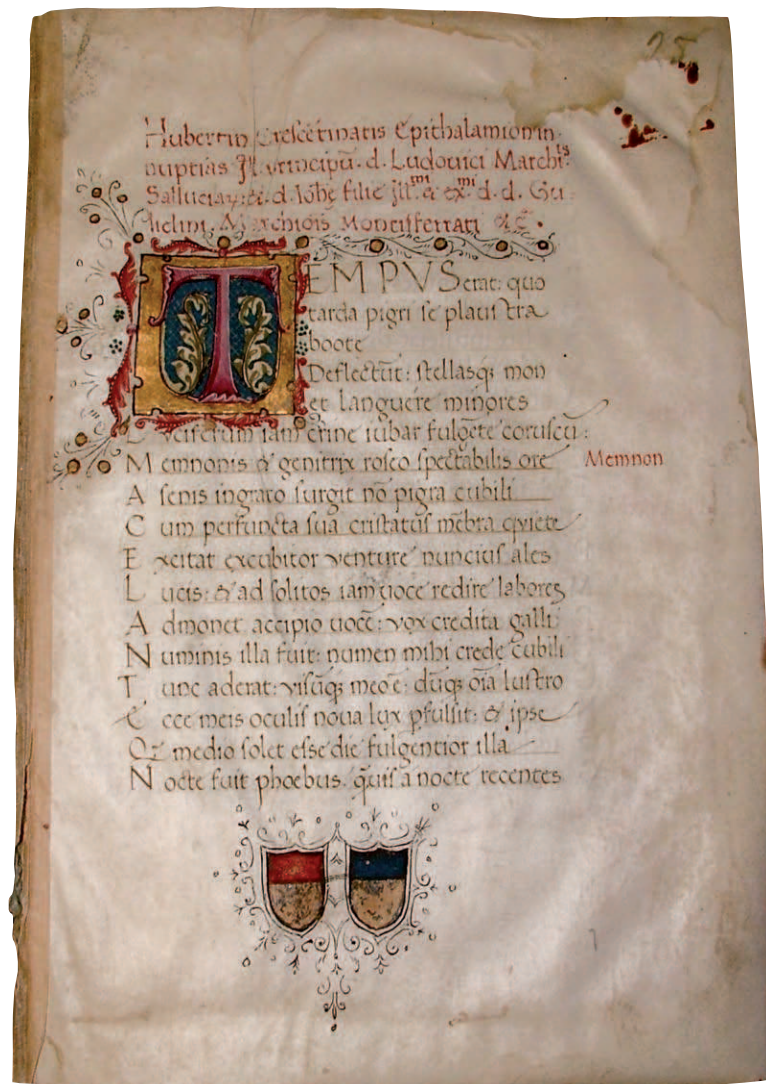 25
Hubertin Crescētinatis Epithalamion in
nuptias Jll. principū. d. Ludouici Marchiis
Salluciaꝝ: &. d. Iohe filie Jll.mi & ex.mi d. d. Gu
lielmi. Marchiois Montisferrati &c.
TEMPVS erat: quo
tarda pigri se plaustra
boote
Deflectūt: stellasqꝫ mon
et languere minores
Luciferum iam crine iubar fulgēte coruscū:
Memnonis & genitrix roseo spectabilis ore
Memnon
A senis ingrato surgit nō pigra cubili
Cum perfuncta sua cristatus mēbra quiete
Excitat excubitor venture nuncius ales
Lucis: & ad solitos iam uoce redire labores
Admonet accipio uocē: vox credita galli
Numinis illa fuit: numen mihi crede cubili
Tunc aderat: visūqꝫ meo ē: dūqꝫ oīa lustro
Ecce meis oculis noua lux ꝓfulsit: & ipse
Qꝫ medio solet esse die fulgentior illa
Nocte fuit phoebus. q̄uis a nocte recentes